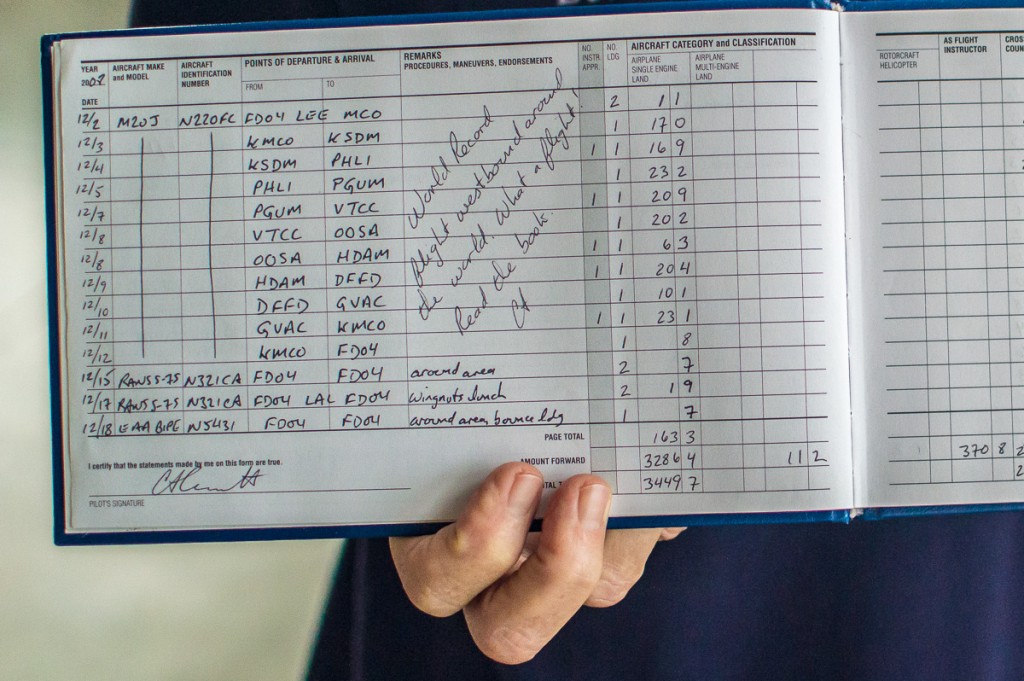 YEAR 2008 AIRCRAFT MAKE and MODEL AIRCRAFT IDENTIFICATION NUMBER POINTS OF DEPARTURE & ARRIVAL REMARKS PROCEDURES, MANEUVERS, ENDORSEMENTS NO. INSTR APPR. NO. LDG AIRCRAFT CATEGORY and CLASSIFICATION ROTORCRAFT HELICOPTER AS FLIGHT INSTRUCTOR
DATE FROM TO AIRPLANE SINGLE ENGINE LAND AIRPLANE MULTI-ENGINE LAND
12/2 M20J N220FC FD04 LEE MCO 2 1 1
12/3 KMCO KSDM 1 17 0
12/4 KSDM PHLI 1 1 16 9
12/5 PHLI PGUM 1 23 2
12/7 PGUM VTCC 1 1 20 9
12/8 VTCC OOSA 1 20 2
12/8 OOSA HDAM 1 1 6 3
12/9 HDAM DFFD 1 1 20 4
12/10 DFFD GVAC 1 10 1
12/11 GVAC KMCO 1 1 23 1
12/12 KMCO FD04 1 8
World Record
flight westbound around
the world. What a flight!
Read the book.
12/15 RANS S-7S N321CA FD04 FD04 around area 2 7
12/17 RANS S-7S N321CA FD04 LAL FD04 wingnuts lunch 2 1 9
12/18 EAA BIPE N5431 FD04 FD04 around area, bounce ldg 1 7
PAGE TOTAL 163 3
I certify that the statements made by me on this form are true. AMOUNT FORWARD 3286 4 11 2 370 8
3449 7
PILOT'S SIGNATURE